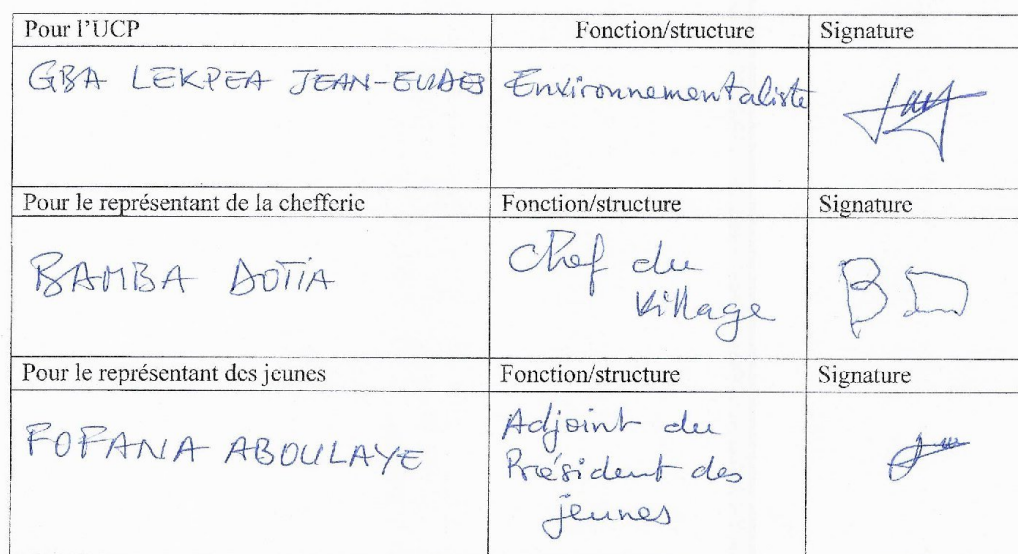 Pour l'UCP Fonction/structure Signature
GBA LEKPEA JEAN-EUDES Environnementaliste
Pour le représentant de la chefferie Fonction/structure Signature
BAMBA DOTIA Chef du
Village BD
Pour le représentant des jeunes Fonction/structure Signature
FOFANA ABOULAYE Adjoint du
Président des
jeunes